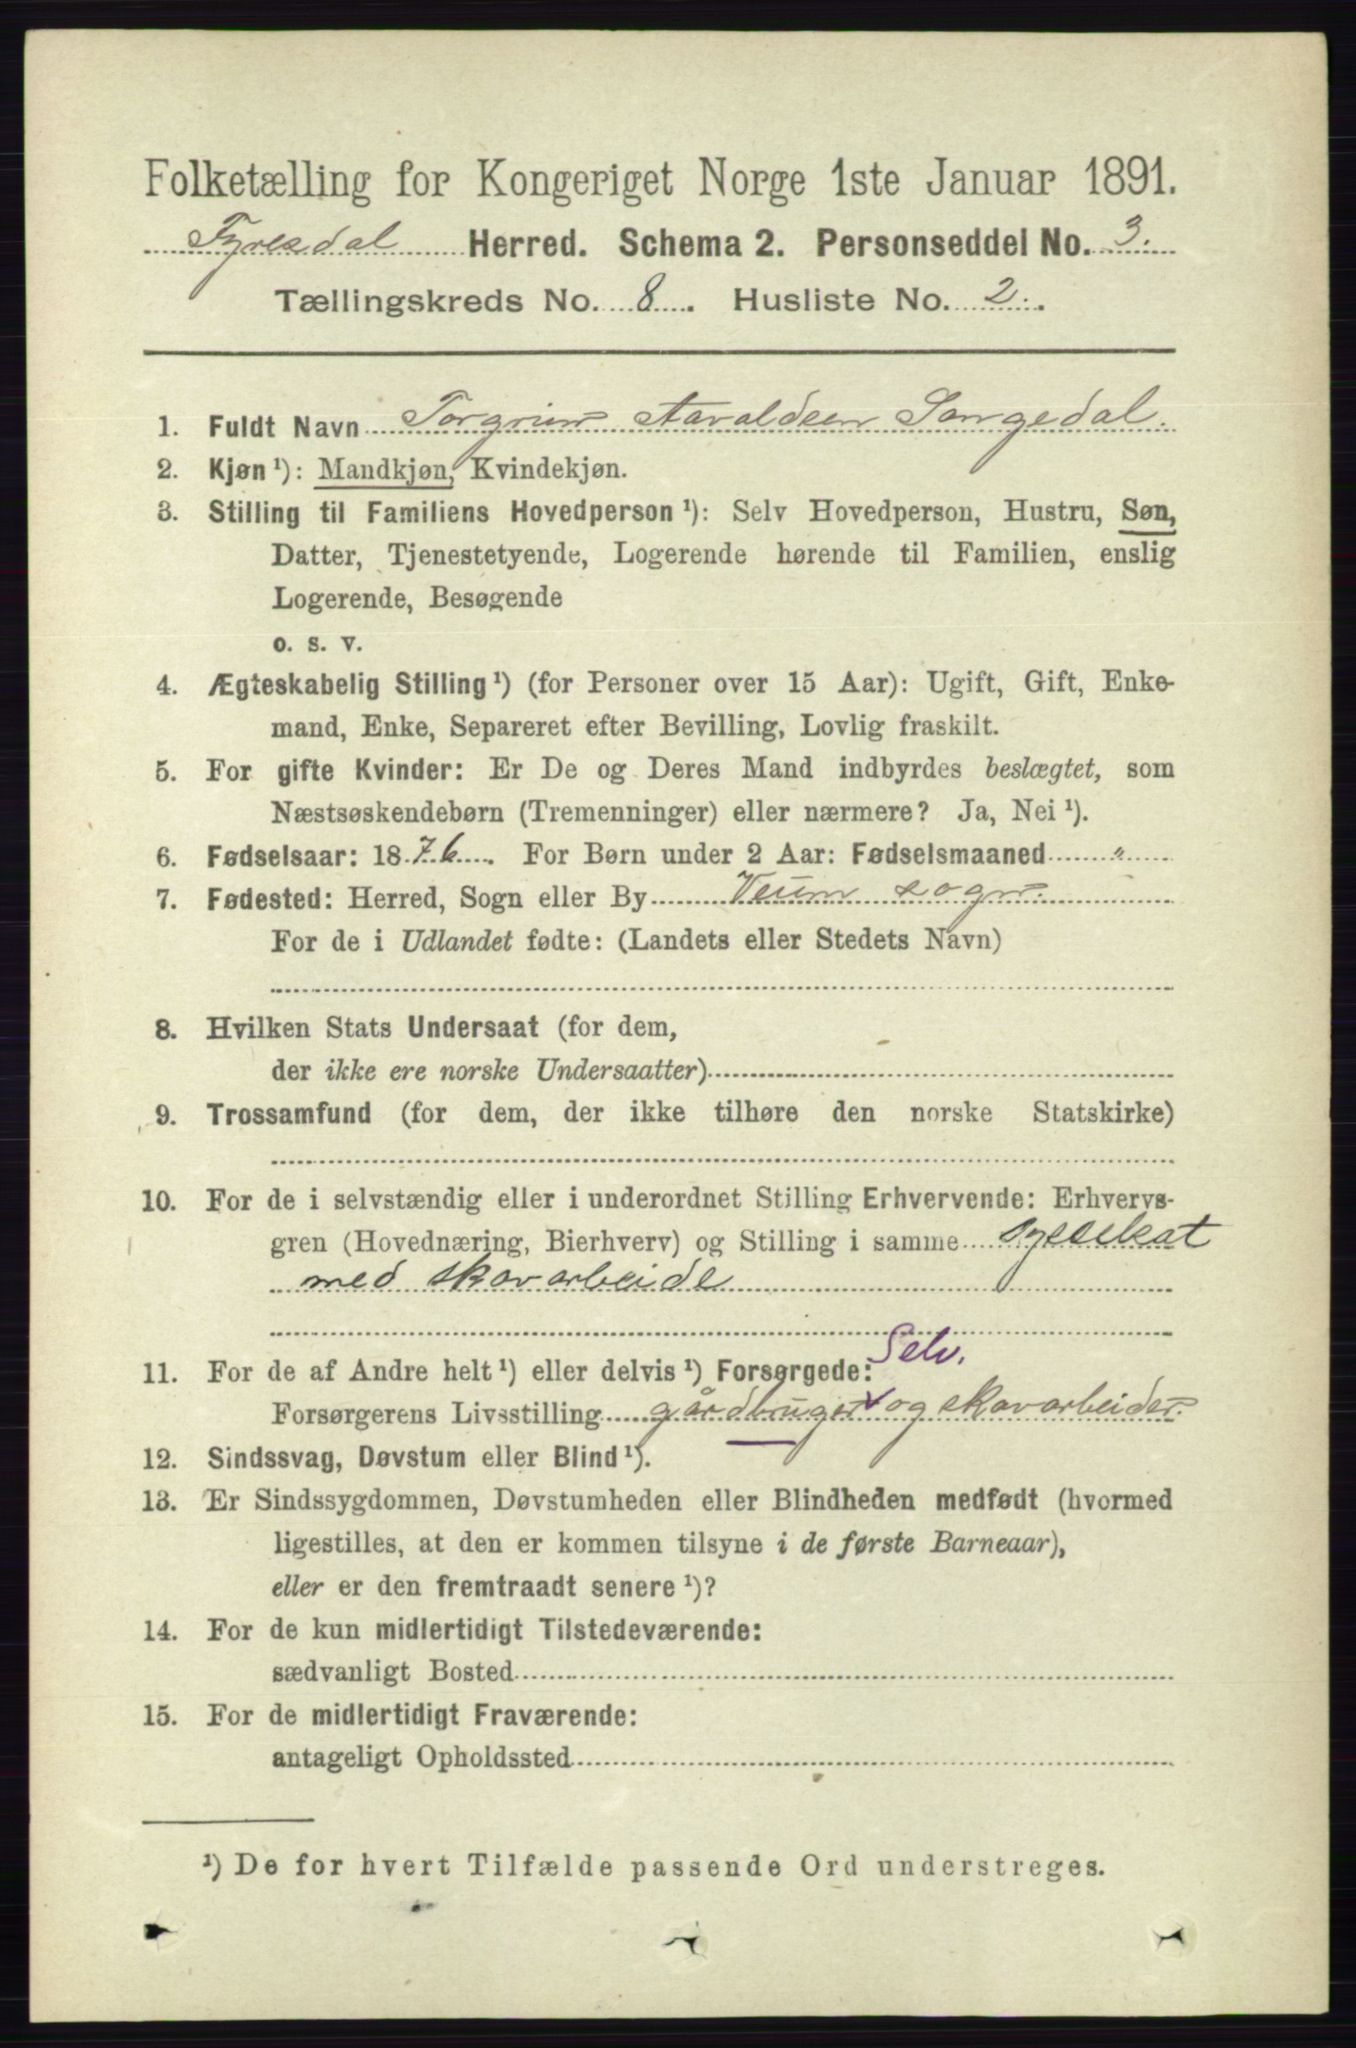 Folketælling for Kongeriget Norge 1ste Januar 1891.
Fyresdal Herred. Schema 2. Personseddel No. 3.
Tællingskreds No. 8. Husliste No. 2.
1. Fuldt Navn Torgrim Aavaldsen Songedal.
2. Kjøn ¹): Mandkjøn, Kvindekjøn.
3. Stilling til Familiens Hovedperson ¹): Selv Hovedperson, Hustru, Søn,
Datter, Tjenestetyende, Logerende hørende til Familien, enslig
Logerende, Besøgende
o. s. v.
4. Ægteskabelig Stilling ¹) (for Personer over 15 Aar): Ugift, Gift, Enke-
mand, Enke, Separeret efter Bevilling, Lovlig fraskilt.
5. For gifte Kvinder: Er De og Deres Mand indbyrdes beslægtet, som
Næstsøskendebørn (Tremenninger) eller nærmere? Ja, Nei ¹).
6. Fødselsaar: 1876. For Børn under 2 Aar: Fødselsmaaned "
7. Fødested: Herred, Sogn eller By Veum sogn.
For de i Udlandet fødte: (Landets eller Stedets Navn)
8. Hvilken Stats Undersaat (for dem,
der ikke ere norske Undersaatter)
9. Trossamfund (for dem, der ikke tilhøre den norske Statskirke)
10. For de i selvstændig eller i underordnet Stilling Erhvervende: Erhvervs-
gren (Hovednæring, Bierhverv) og Stilling i samme sysselsat
med skovarbeide
Selv.
11. For de af Andre helt ¹) eller delvis ¹) Forsørgede:
Forsørgerens Livsstilling gårdbruger og skovarbeider.
12. Sindssvag, Døvstum eller Blind ¹).
13. Er Sindssygdommen, Døvstumheden eller Blindheden medfødt (hvormed
ligestilles, at den er kommen tilsyne i de første Barneaar),
eller er den fremtraadt senere ¹)?
14. For de kun midlertidigt Tilstedeværende:
sædvanligt Bosted
15. For de midlertidigt Fraværende:
antageligt Opholdssted
¹) De for hvert Tilfælde passende Ord understreges.